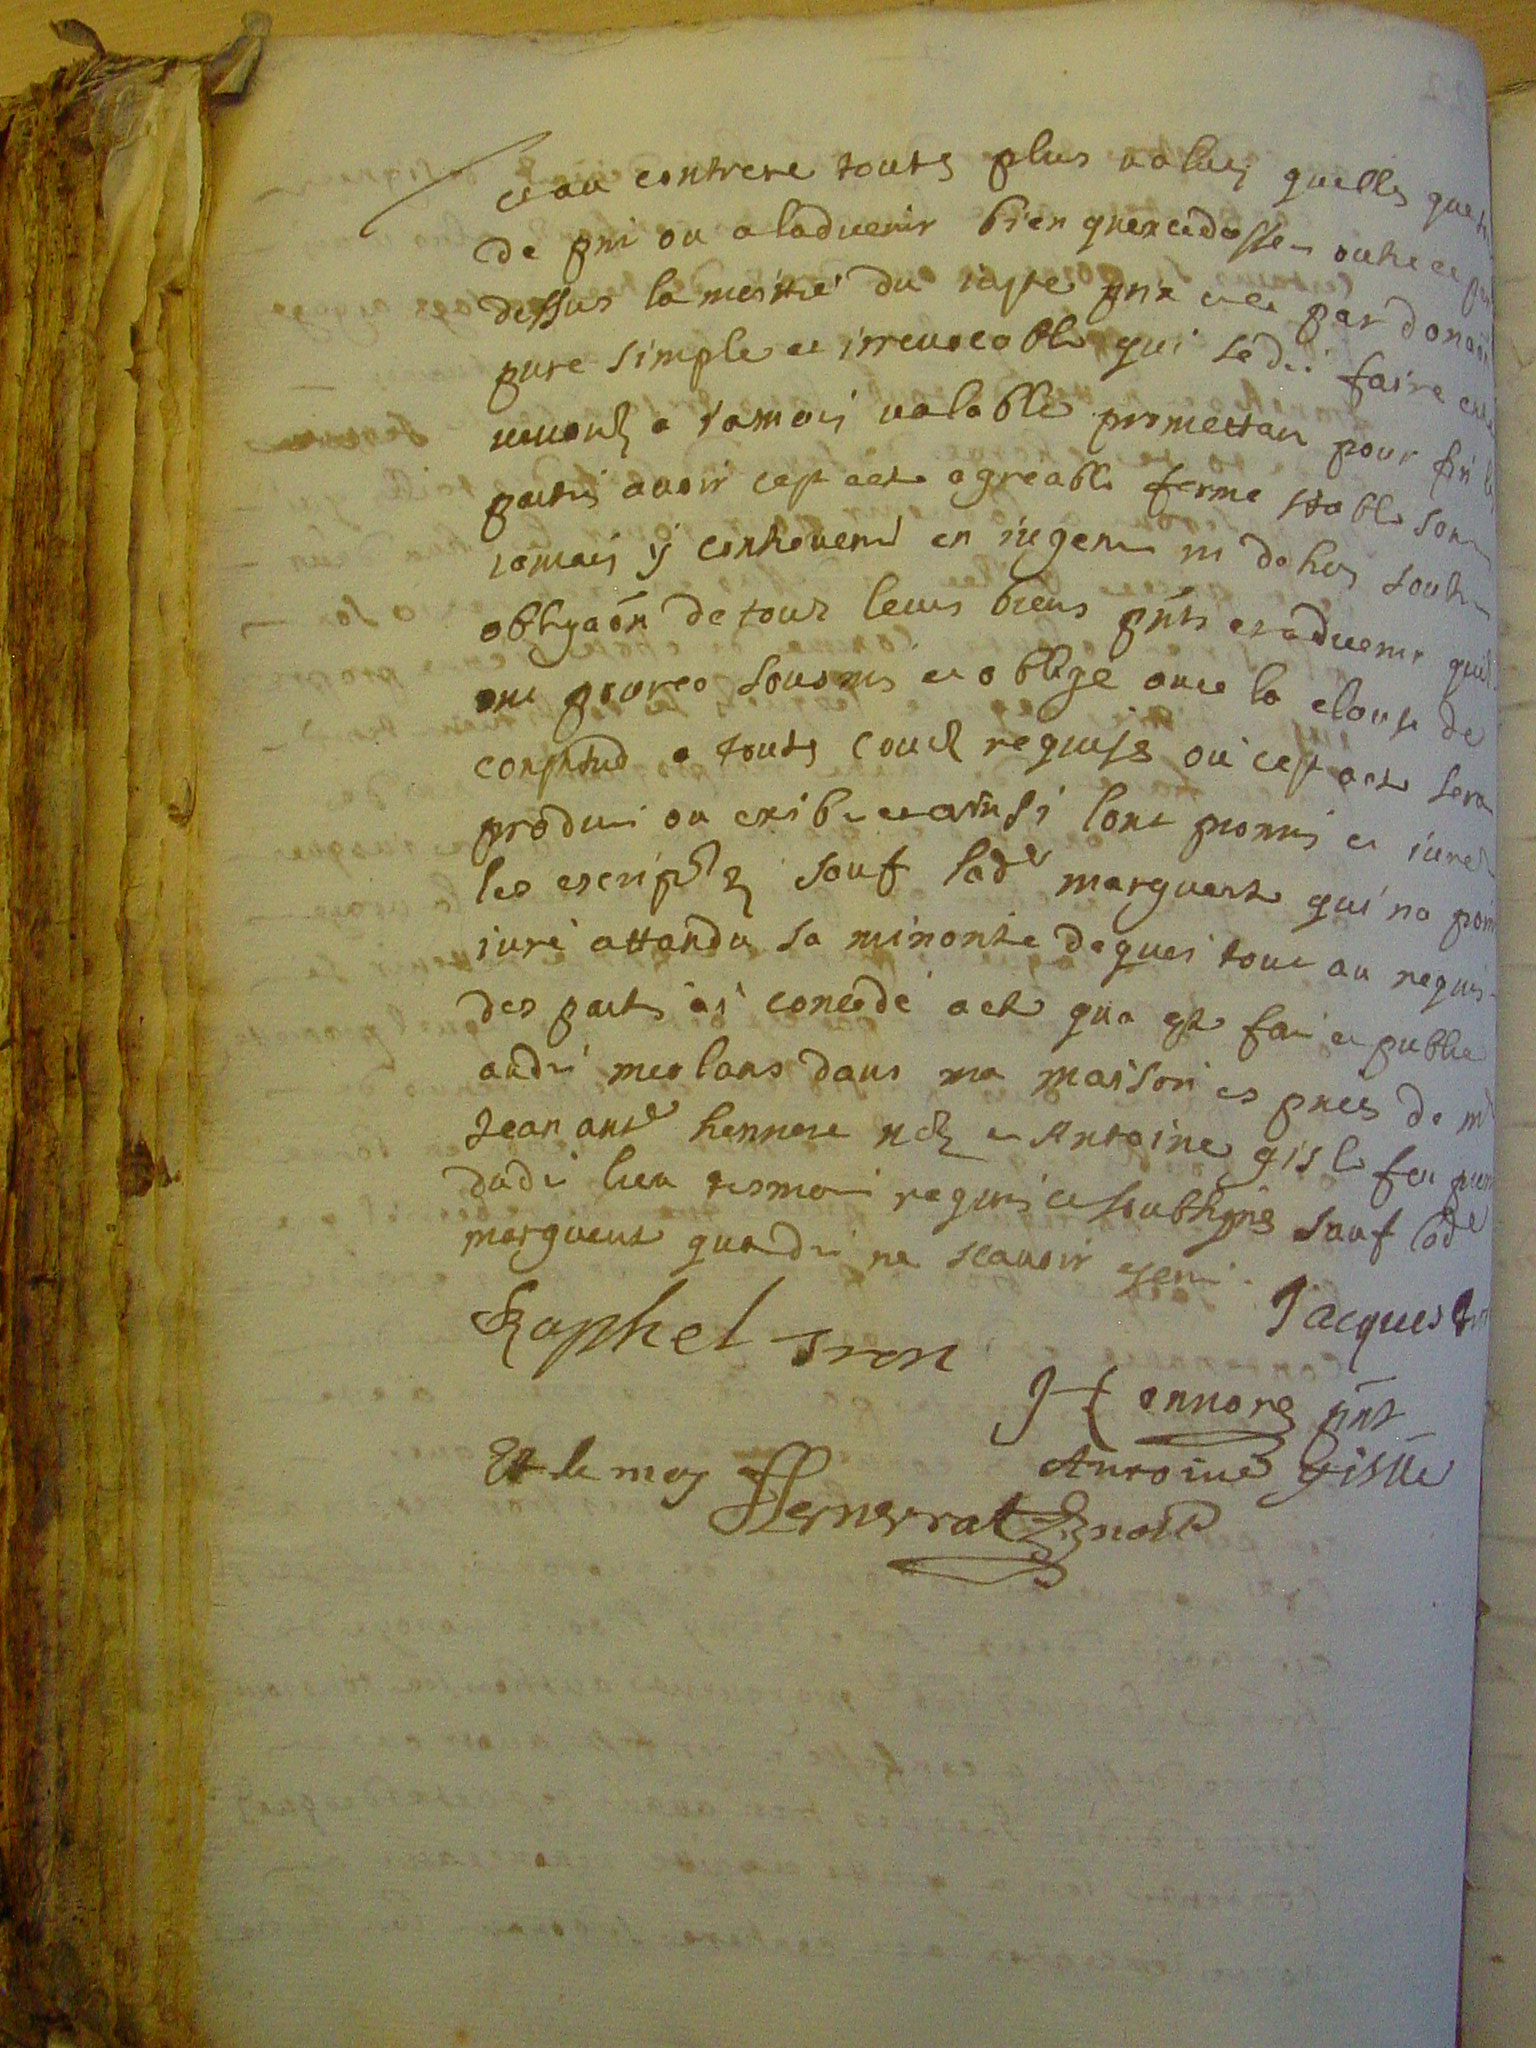 et au contrere touts plus values quelles que
de pnt ou a ladvenir bien quexcedassen outre et
dessus la moitie du juste prix et ce par donaon
pure simple et irrevocable qui se dit faire
a jamais valable promettan pour fin
partis avoir cest acte agreable ferme stable san
jamais y contrevenir en jugemt ni dehors soubz
obligaon de tous leurs biens pnts et advenir quils
ont pour ce sousmis et oblige avec la clause de
a touts cours requises ou cest acte sera
produit ou exibe et ainsi lont promis et jure
les escriptures sauf lade marguerite qui na poin
jure attandu sa minorite dequoi tout au requis
des parties ai concede acte qua este fait et publie
audit meolans dans ma maison es pnces de me
Jean ante honnore nore et Antoine gisle feu
dudit lieu tesmoin requis et soubsignes sauf lade
marguerite qua dit ne scavoir escrire
Raphel tron
Jacques
Honnore pnt
Antoine gislle
Et de moy
nore